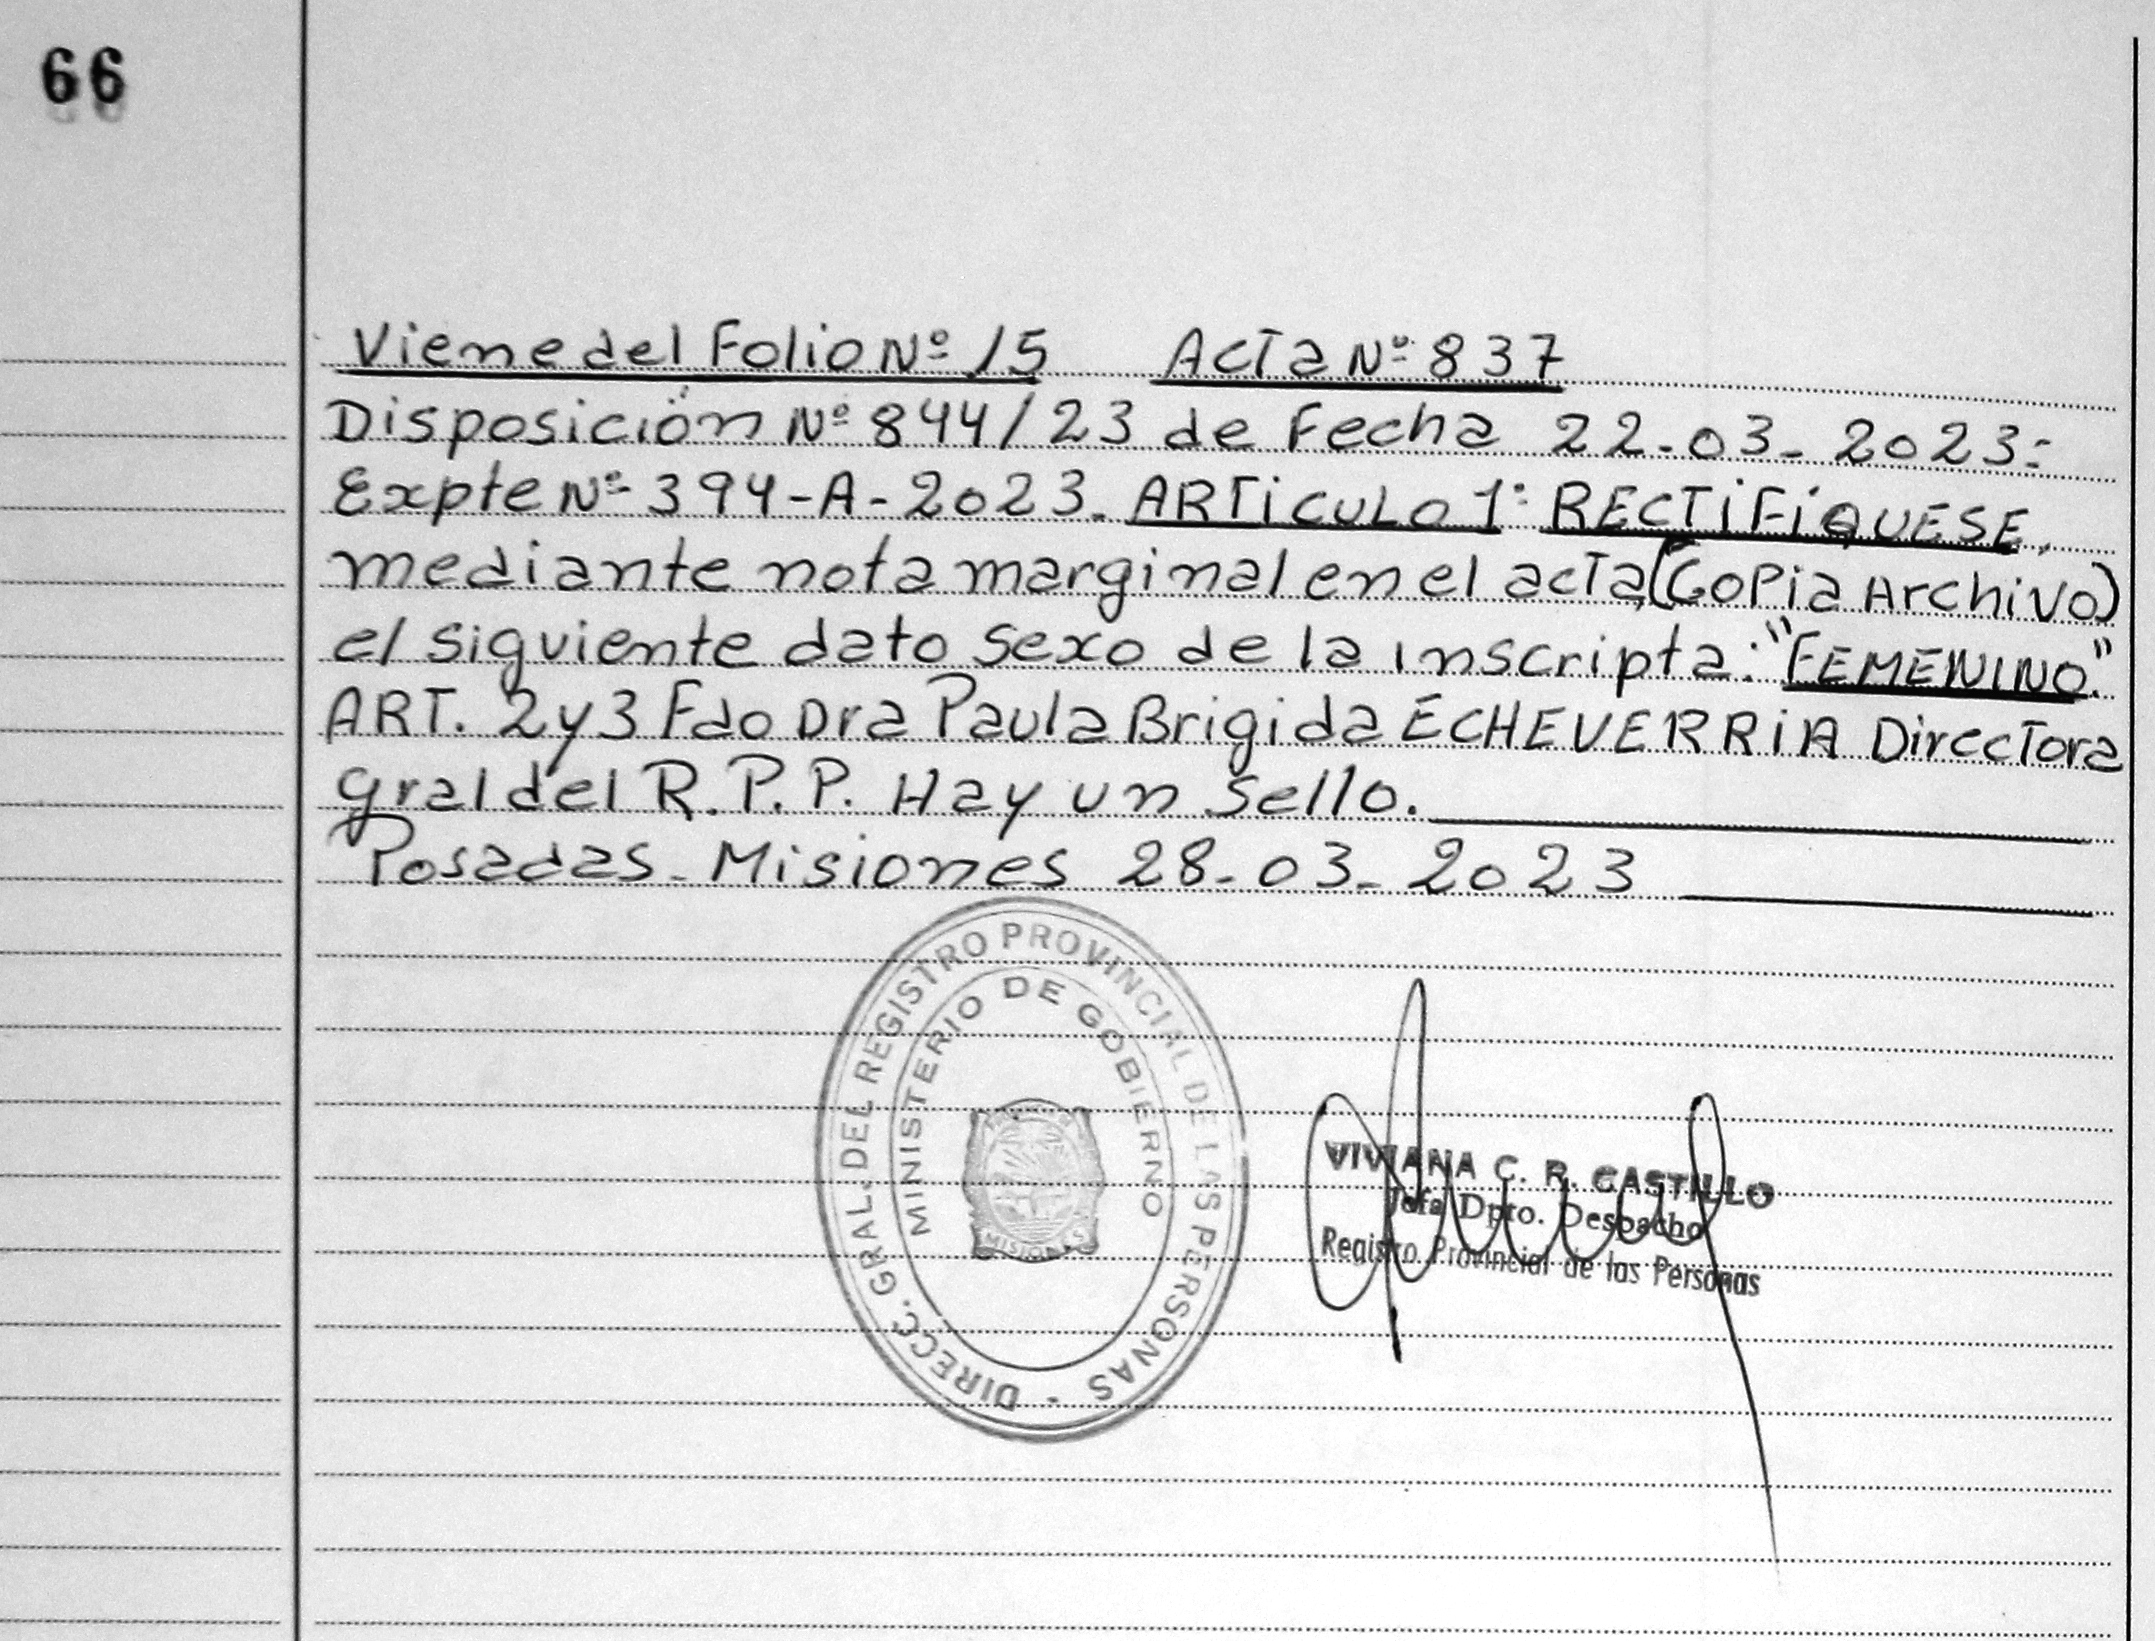 66
Viene del Folio Nº 15 Acta Nº 837
Disposición Nº 844/23 de Fecha 22-03-2023:
Expte Nº 394-A-2023. ARTICULO 1: RECTIFÍQUESE,
mediante nota marginal en el acta (Copia Archivo)
el siguiente dato sexo de la inscripta: "FEMENINO".
ART. 2 y 3 Fdo Dra Paula Brigida ECHEVERRIA Directora
gral del R.P.P. Hay un sello.
Posadas - Misiones 28-03-2023
DIRECC. GRAL. DEL REGISTRO PROVINCIAL DE LAS PERSONAS -
MINISTERIO DE GOBIERNO
MISIONES
VIVIANA C. R. CASTILLO
Jefa Dpto. Despacho
Registro Provincial de las Personas